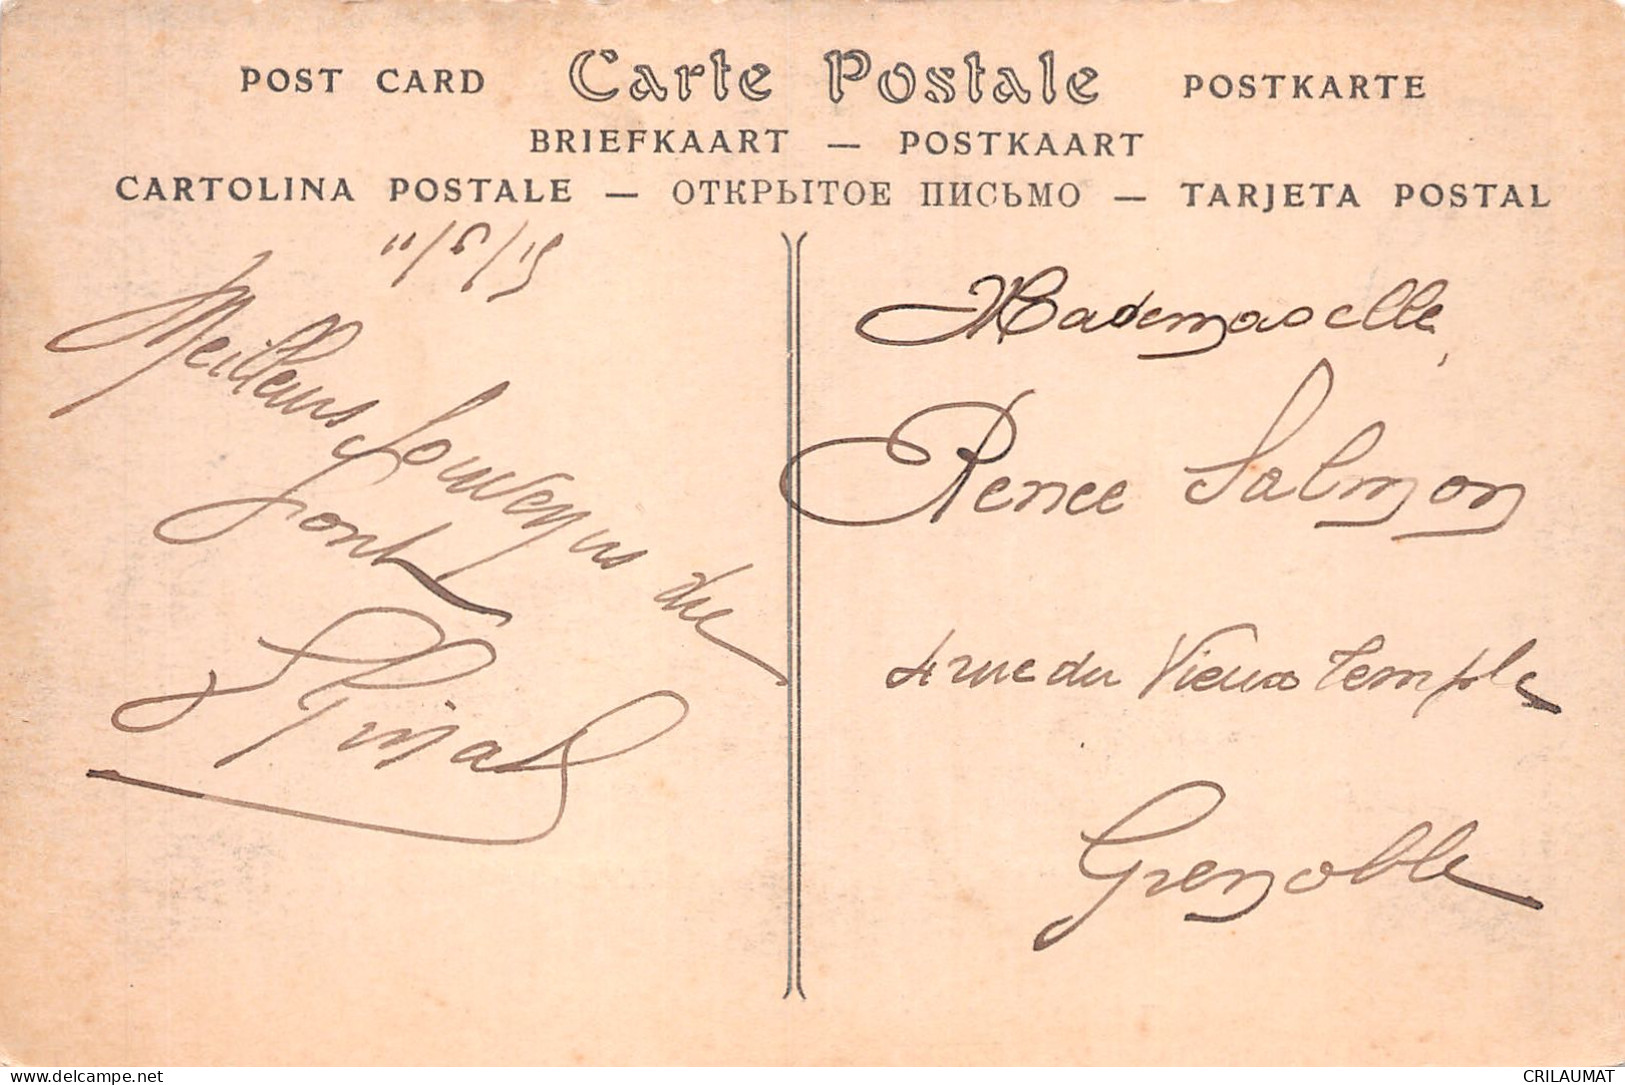 POST CARD Carte Postale POSTKARTE
BRIEFKAART — POSTKAART
CARTOLINA POSTALE — ОТКРЫТОЕ ПИСЬМО — TARJETA POSTAL
Meilleurs Souvenirs du
Font
Mademoiselle
Renee Salmon
4 rue du Vieux Temple
Grenoble
CRILAUMAT